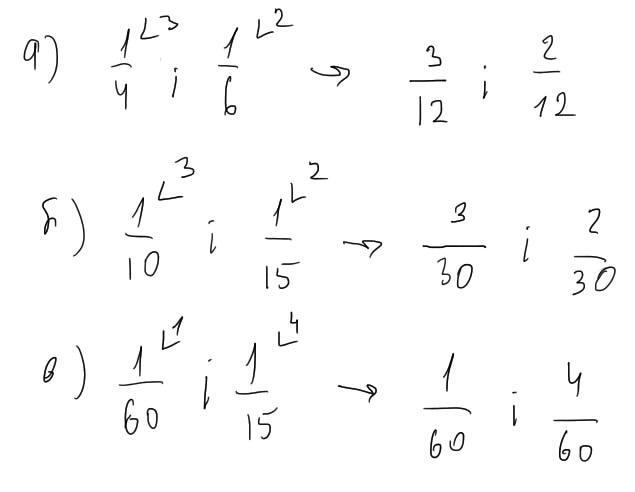 а) 1/4 ∟3 і 1/6 ∟2 → 3/12 і 2/12
б) 1/10 ∟3 і 1/15 ∟2 → 3/30 і 2/30
в) 1/60 ∟1 і 1/15 ∟4 → 1/60 і 4/60